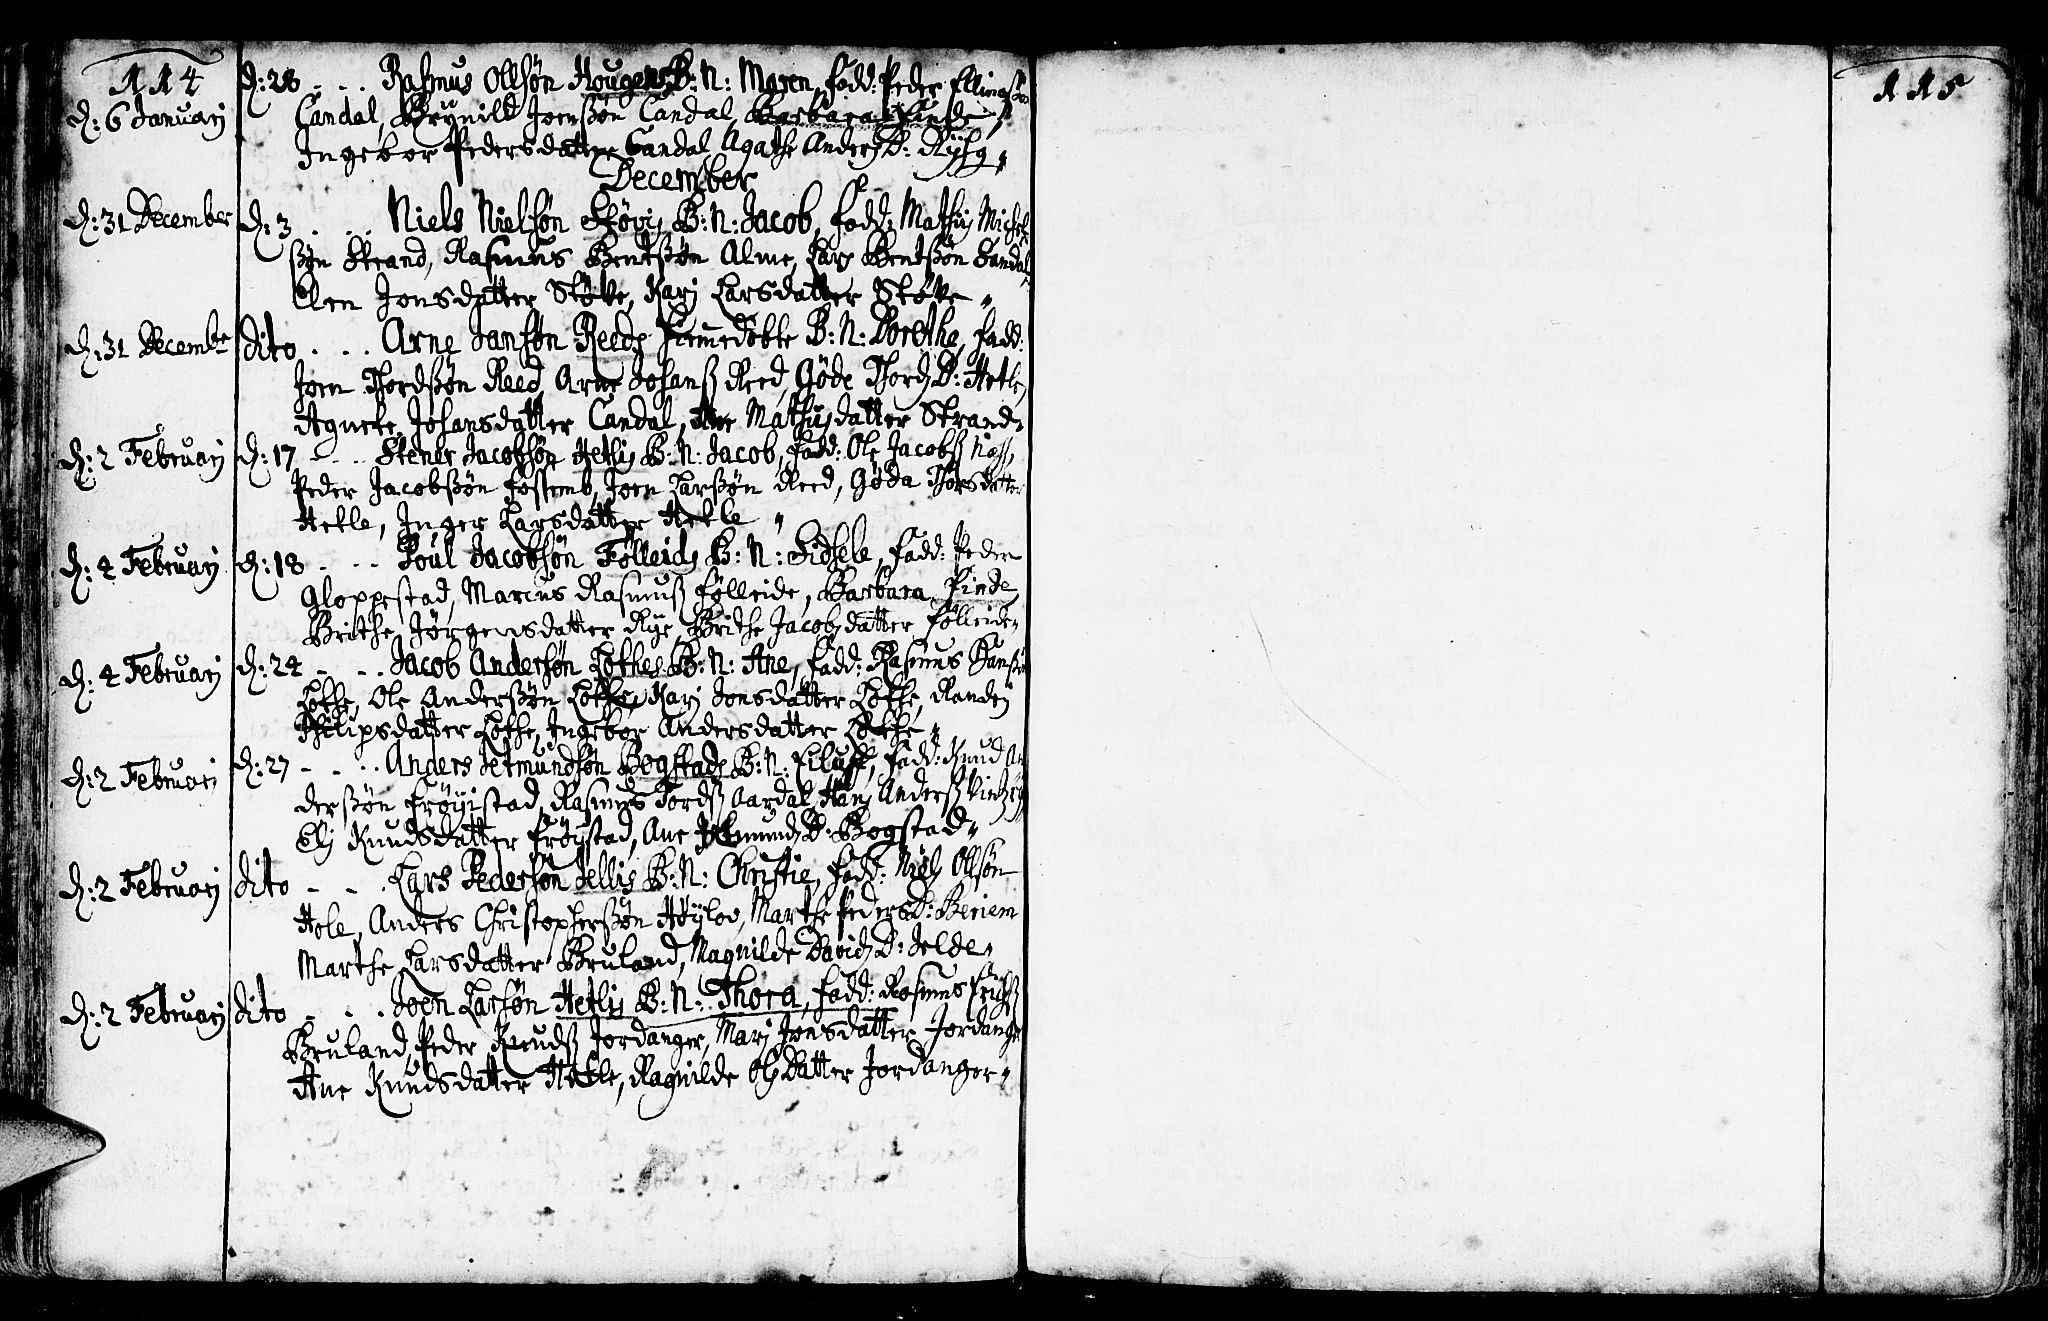 114
d: 28 - . . Rasmus Ollsøn Hougens B: N: Maren, fadd: Peder Ellingsøn
d: 6 Januarj
Candal, Brynild Joenssøn Candal, Barbara Finde,
Ingebor Pedersdatter Candal Agathe Anders D: Rysg„
December
d: 31 December d: 3 . . . Niels Nielsøn Støvis B: N: Jacob, fadd: Mathis Michels
søn Strand, Rasmus Bentssøn Alme, Lars Bentssøn Sandal
Elen Jonsdatter Støve, Karj Larsdatter Støve„
d: 31 Decembr dito . . . Arne Jansøn Reeds B: N: Dorethe, fadd:
Joen Thordssøn Reed, Arne Johanss Reed, Gøde Thords D: Hetle,
Agnete Johansdatter Candal, Ane Mathisdatter Strand„
d: 2 Februarj d: 17 - . . . Stener Jacobsøn Hetlis B: N: Jacob, fadd: Ole Jacobss Næss,
Peder Jacobssøn Fossemb, Joen Larssøn Reed, Gøda Thorsdatter
Hetle, Inger Larsdatter Hetle„
d: 2 Februarj d: 18 - . . . Poul Jacobsøn Følleids B: N: Sidsele, fadd: Peder
Gloppestad, Marcus Rasmuss Følleide, Barbara Finde,
Brithe Jørgensdatter Rye, Brithe Jacobsdatter Følleide„
d: 4 Februarj d: 24 - . . . Jacob Andersøn Løthes B: N: Ane, fadd: Rasmus Hanssøn
Løthe, Ole Anderssøn Løthe, Karj Jonsdatter Løthe, Randej
Philipsdatter Løthe, Ingebor Andersdatter Løthe„
d: 2 Februarj d: 27 - - . . Anders Jetmundsøn Bogstads B: N: Eiluff, fadd: Knud An
derssøn Frøyistad, Rasmus Tordss Aardal, Hans Anderss
Elj Knudsdatter Frøystad, Ane Jetmunds D: Bogstad„
d: 2 Februarj dito - - . Lars Pedersøn Jellis B: N: Christie, fadd: Niels Ollsøn
Hole, Anders Christopherssøn Høylov, Marthe Peders D: Beriem
Marthe Larsdatter Bruland, Magnilde Davids D: Jelde„
d: 2 Februarj dito - . . Joen Larsøn Hetlis B: N: Thora, fadd: Rasmus Erichss
Bruland, Peder Knudss Jordanger, Marj Jonsdatter Jordanger
Ane Knudsdatter Hetle, Ragnilde Ols Datter Jordanger„
115